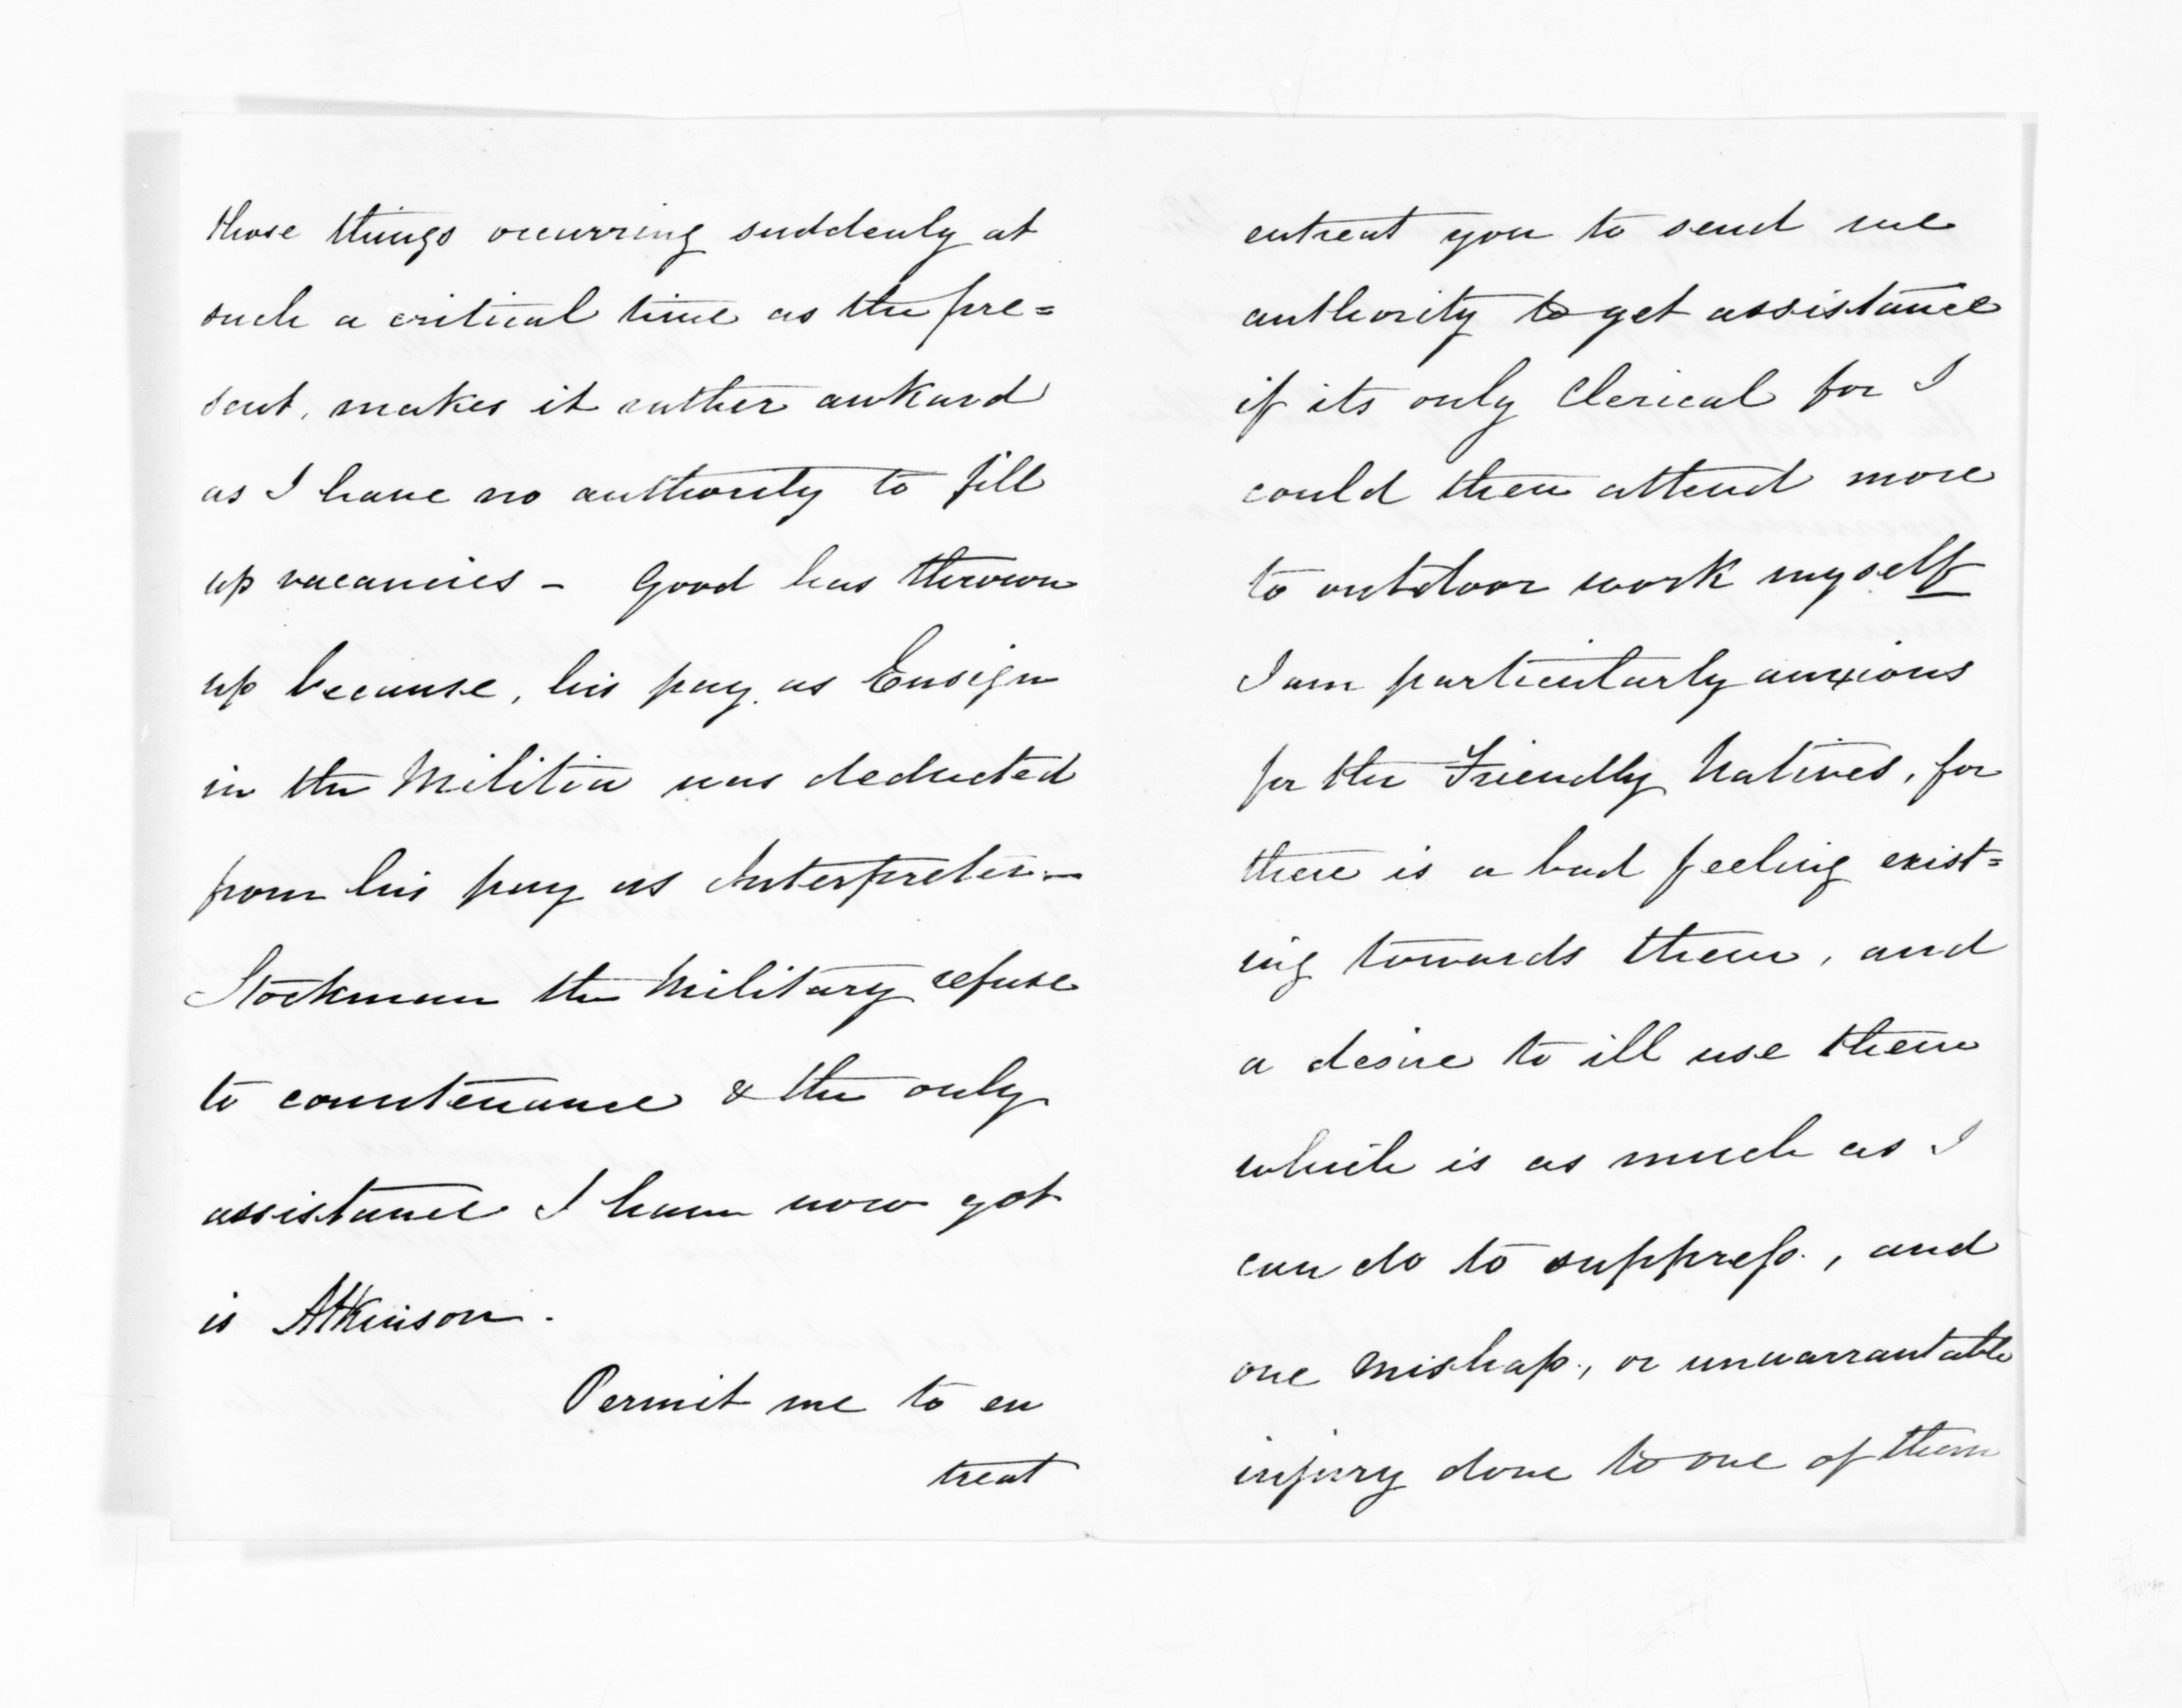 those things occurring suddenly at
such a critical time as the pre=
sent, makes it rather awkard
as I have no authority to fill
up vacancies - Good has thrown
up because, his pay as Ensign
in the Militia was deducted
from his pay as Interpreter -
Stockman the Military refuse
to countenance & the only
assistance I have now got
is Atkinson.
Permit me to en
treat
entreat you to send me
authority to get assistance
if its only Clerical for I
could then attend more
to outdoor work myself
I am particularly anxious
for the Friendly Natives, for
there is a bad feeling exist=
ing towards them, and
a desire to ill use them
which is as much as I
can do to suppress, and
one mishap, or unwarrantable
injury done to one of them